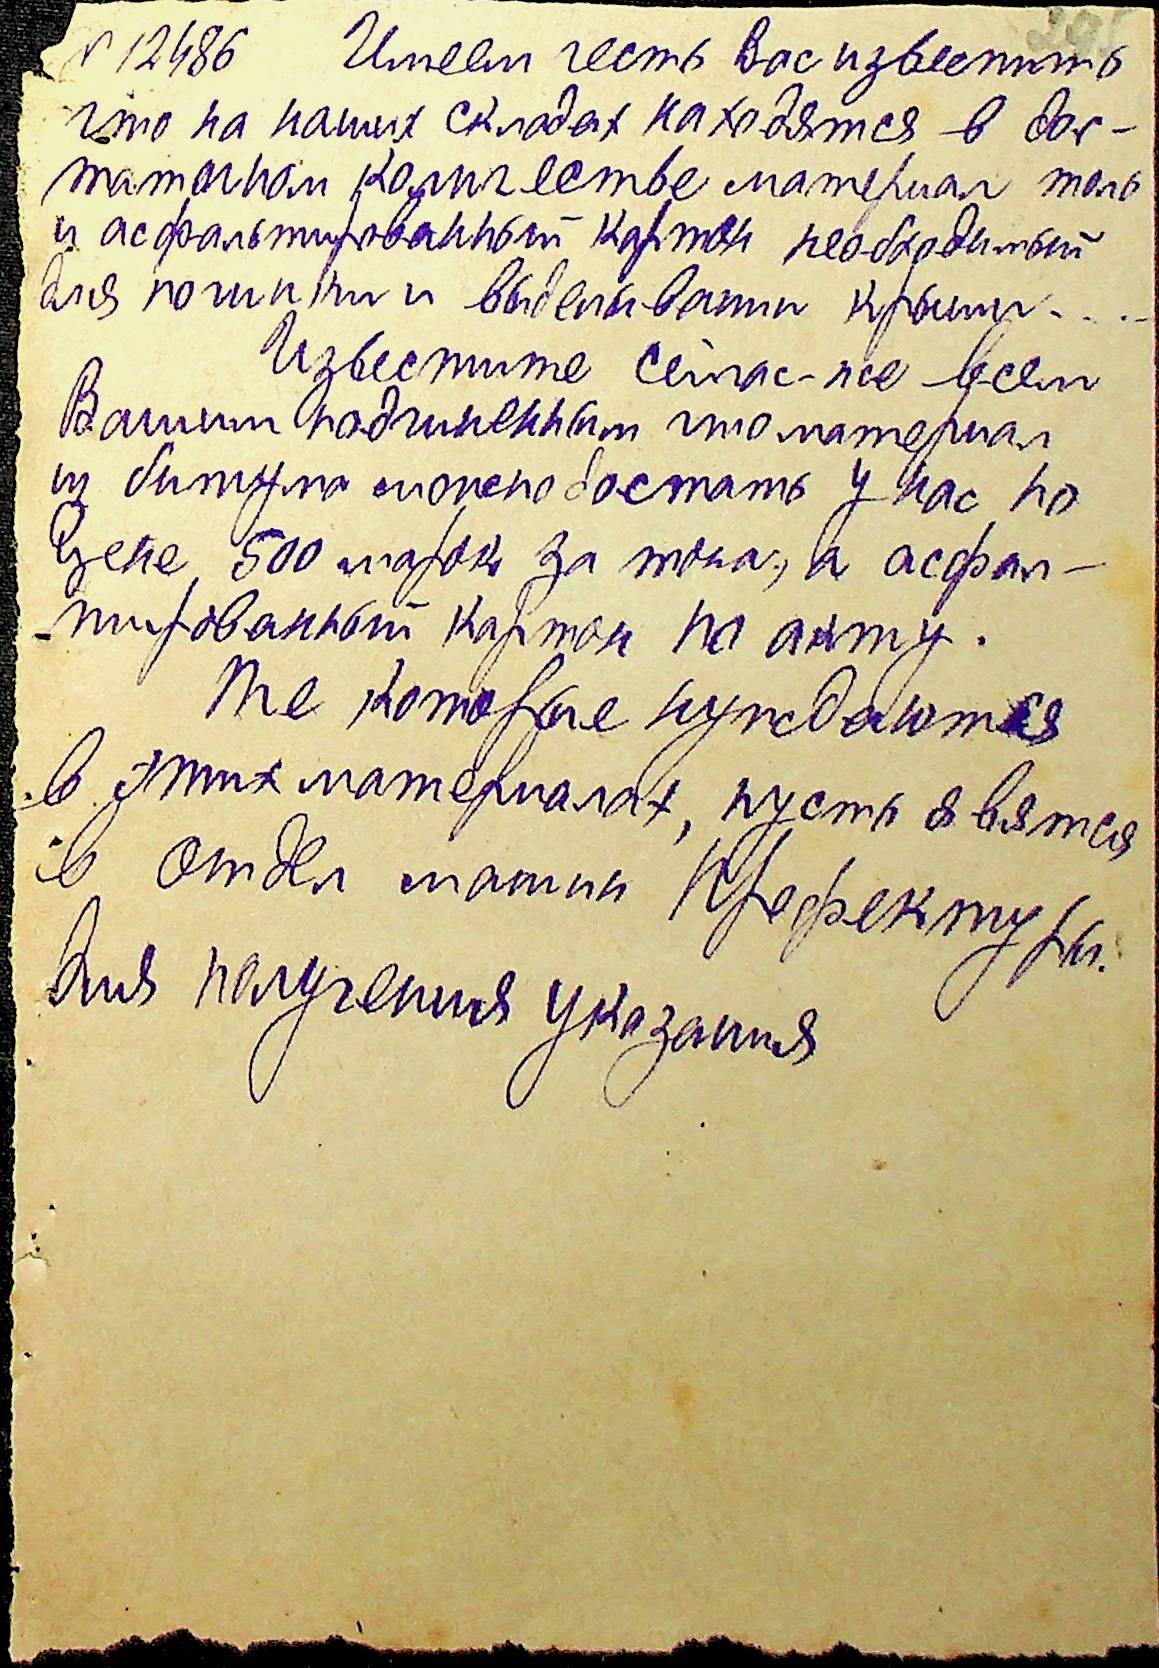 № 12486 Имеем честь Вас известить
что на наших складах находятся в дос-
таточном количестве материал толь
и асфальтированный картон необходимый
для починки и выделывании крыши....
Известите сейчас-же всем
Вашим подчиненным что материал
из битума можно достать у нас по
цене 500 марок за тона, а асфал-
-тированный картон по акту.
Те которые нуждаются
в этих материалах, пусть явятся
в Отдел машин Префектуры.
для получения указания